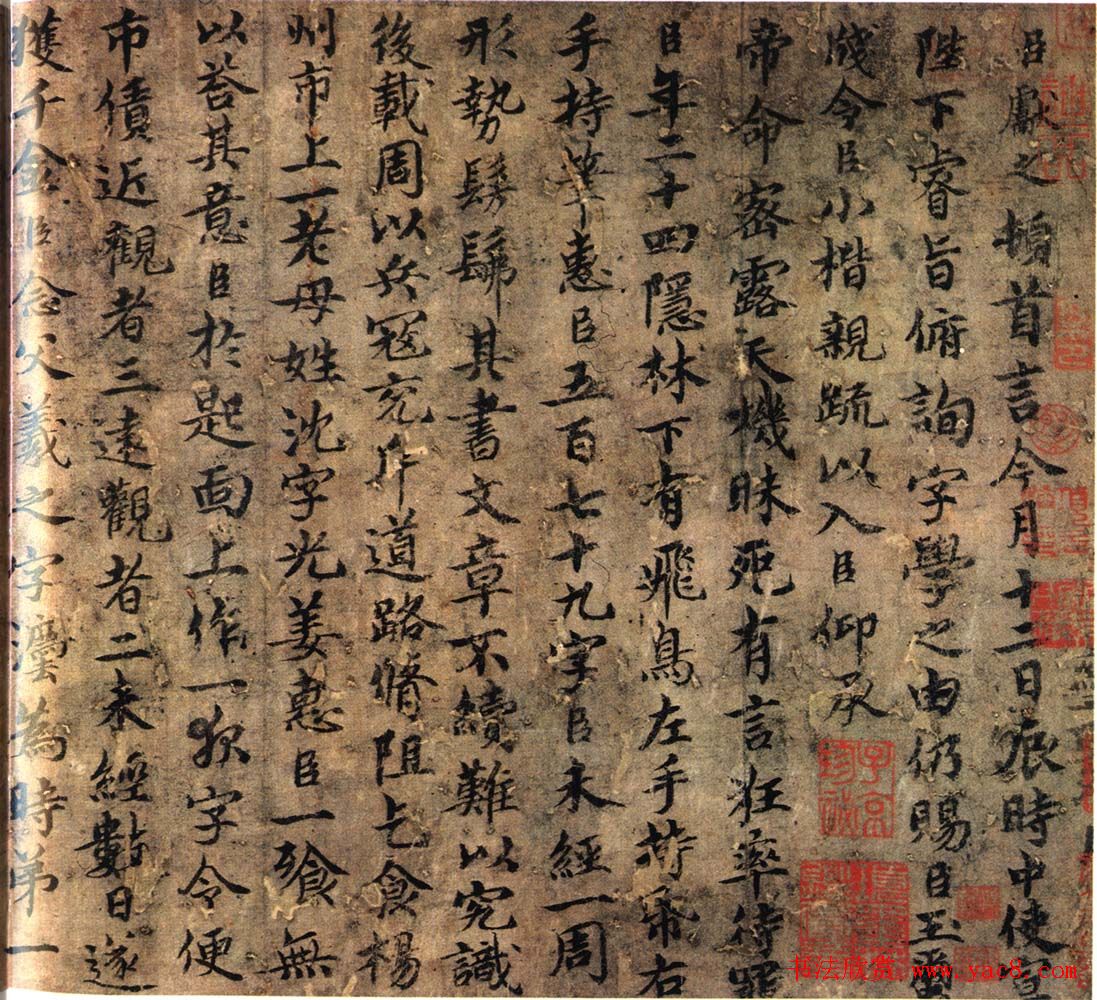 臣獻之頓首言今月十三日辰時中使宣
陛下睿旨俯詢字學之由仍賜臣玉
成令臣小楷親䟽以入臣仰承
帝命密露天機昧死有言狂率待罪
臣年二十四隱林下有飛鳥左手持帋右
手持筆惠臣五百七十九字臣未經一周
形勢髣髴其書文章不續難以究識
後載周以兵寇充斥道路脩阻乞食楊
州市上一老母姓沈字光姜惠臣一飡無
以荅其意臣於匙面上作一夜字令便
市債近觀者三遠觀者二未經數日遂
獲千金臣念父羲之字法為時第一
书法欣赏 www.yac8.com